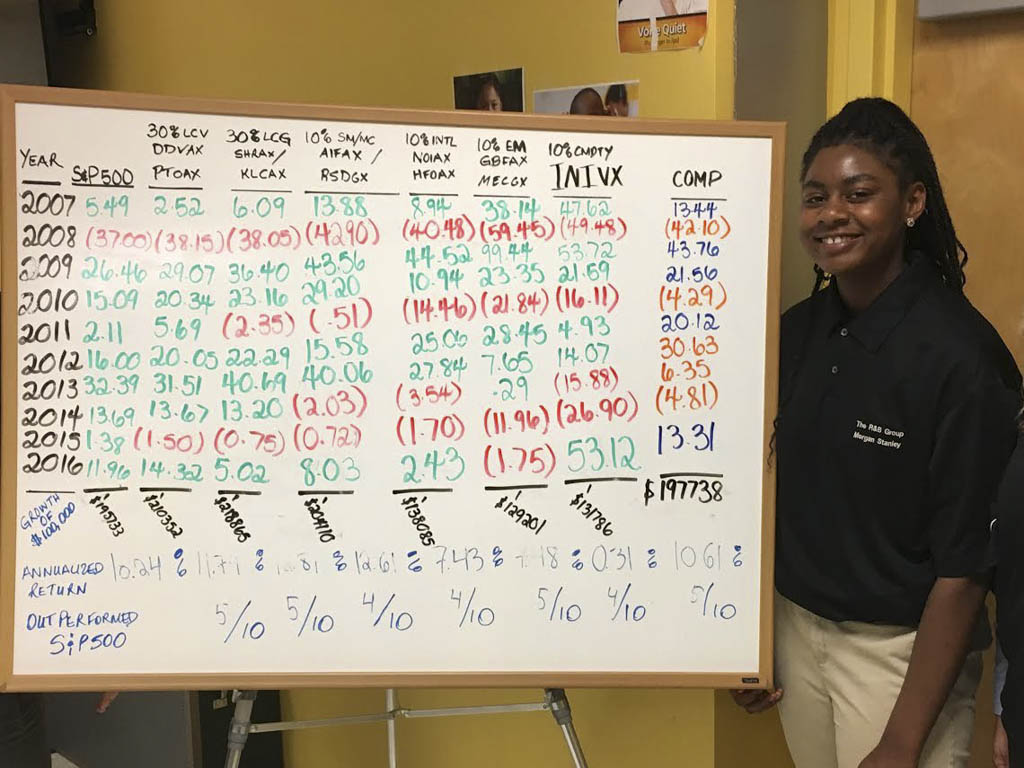 Vote Quiet
30% LCV 30% LCG 10% SM/MC 10% INTL 10% EM 10% CMPTY
YEAR S&P500 DDVAX SHRAX/ AIFAX / NOIAX GBFAX INIVX COMP
PTOAX KLCAX RSDGX HFOAX MECGX
2007 5.49 2.52 6.09 13.88 8.94 38.14 47.62 13.44
2008 (37.00) (38.15) (38.05) (4290) (40.48) (59.45) (49.48) (42.10)
2009 26.46 29.07 36.40 43.56 44.52 99.44 53.72 43.76
2010 15.09 20.34 23.16 29.20 10.94 23.35 21.59 21.56
2011 2.11 5.69 (2.35) (.51) (14.46) (21.84) (16.11) (4.29)
2012 16.00 20.05 22.29 15.58 25.06 28.45 4.93 20.12
2013 32.39 31.51 40.69 40.06 27.84 7.65 14.07 30.63
2014 13.69 13.67 13.20 (2.03) (3.54) .29 (15.88) 6.35
2015 1.38 (1.50) (0.75) (0.72) (1.70) (11.96) (26.90) (4.81)
2016 11.96 14.32 5.02 8.03 2.43 (1.75) 53.12 13.31
GROWTH
OF
$100,000
$195133 $210352 $218865 $204110 $138085 $129201 $131786 $197738
ANNUALIZED 10.24 % % % 12.61 % 7.43 % % 0.31 % 10.61 %
RETURN
OUTPERFORMED 5/10 5/10 4/10 4/10 5/10 4/10 5/10
S&P500
The R&B Group
Morgan Stanley